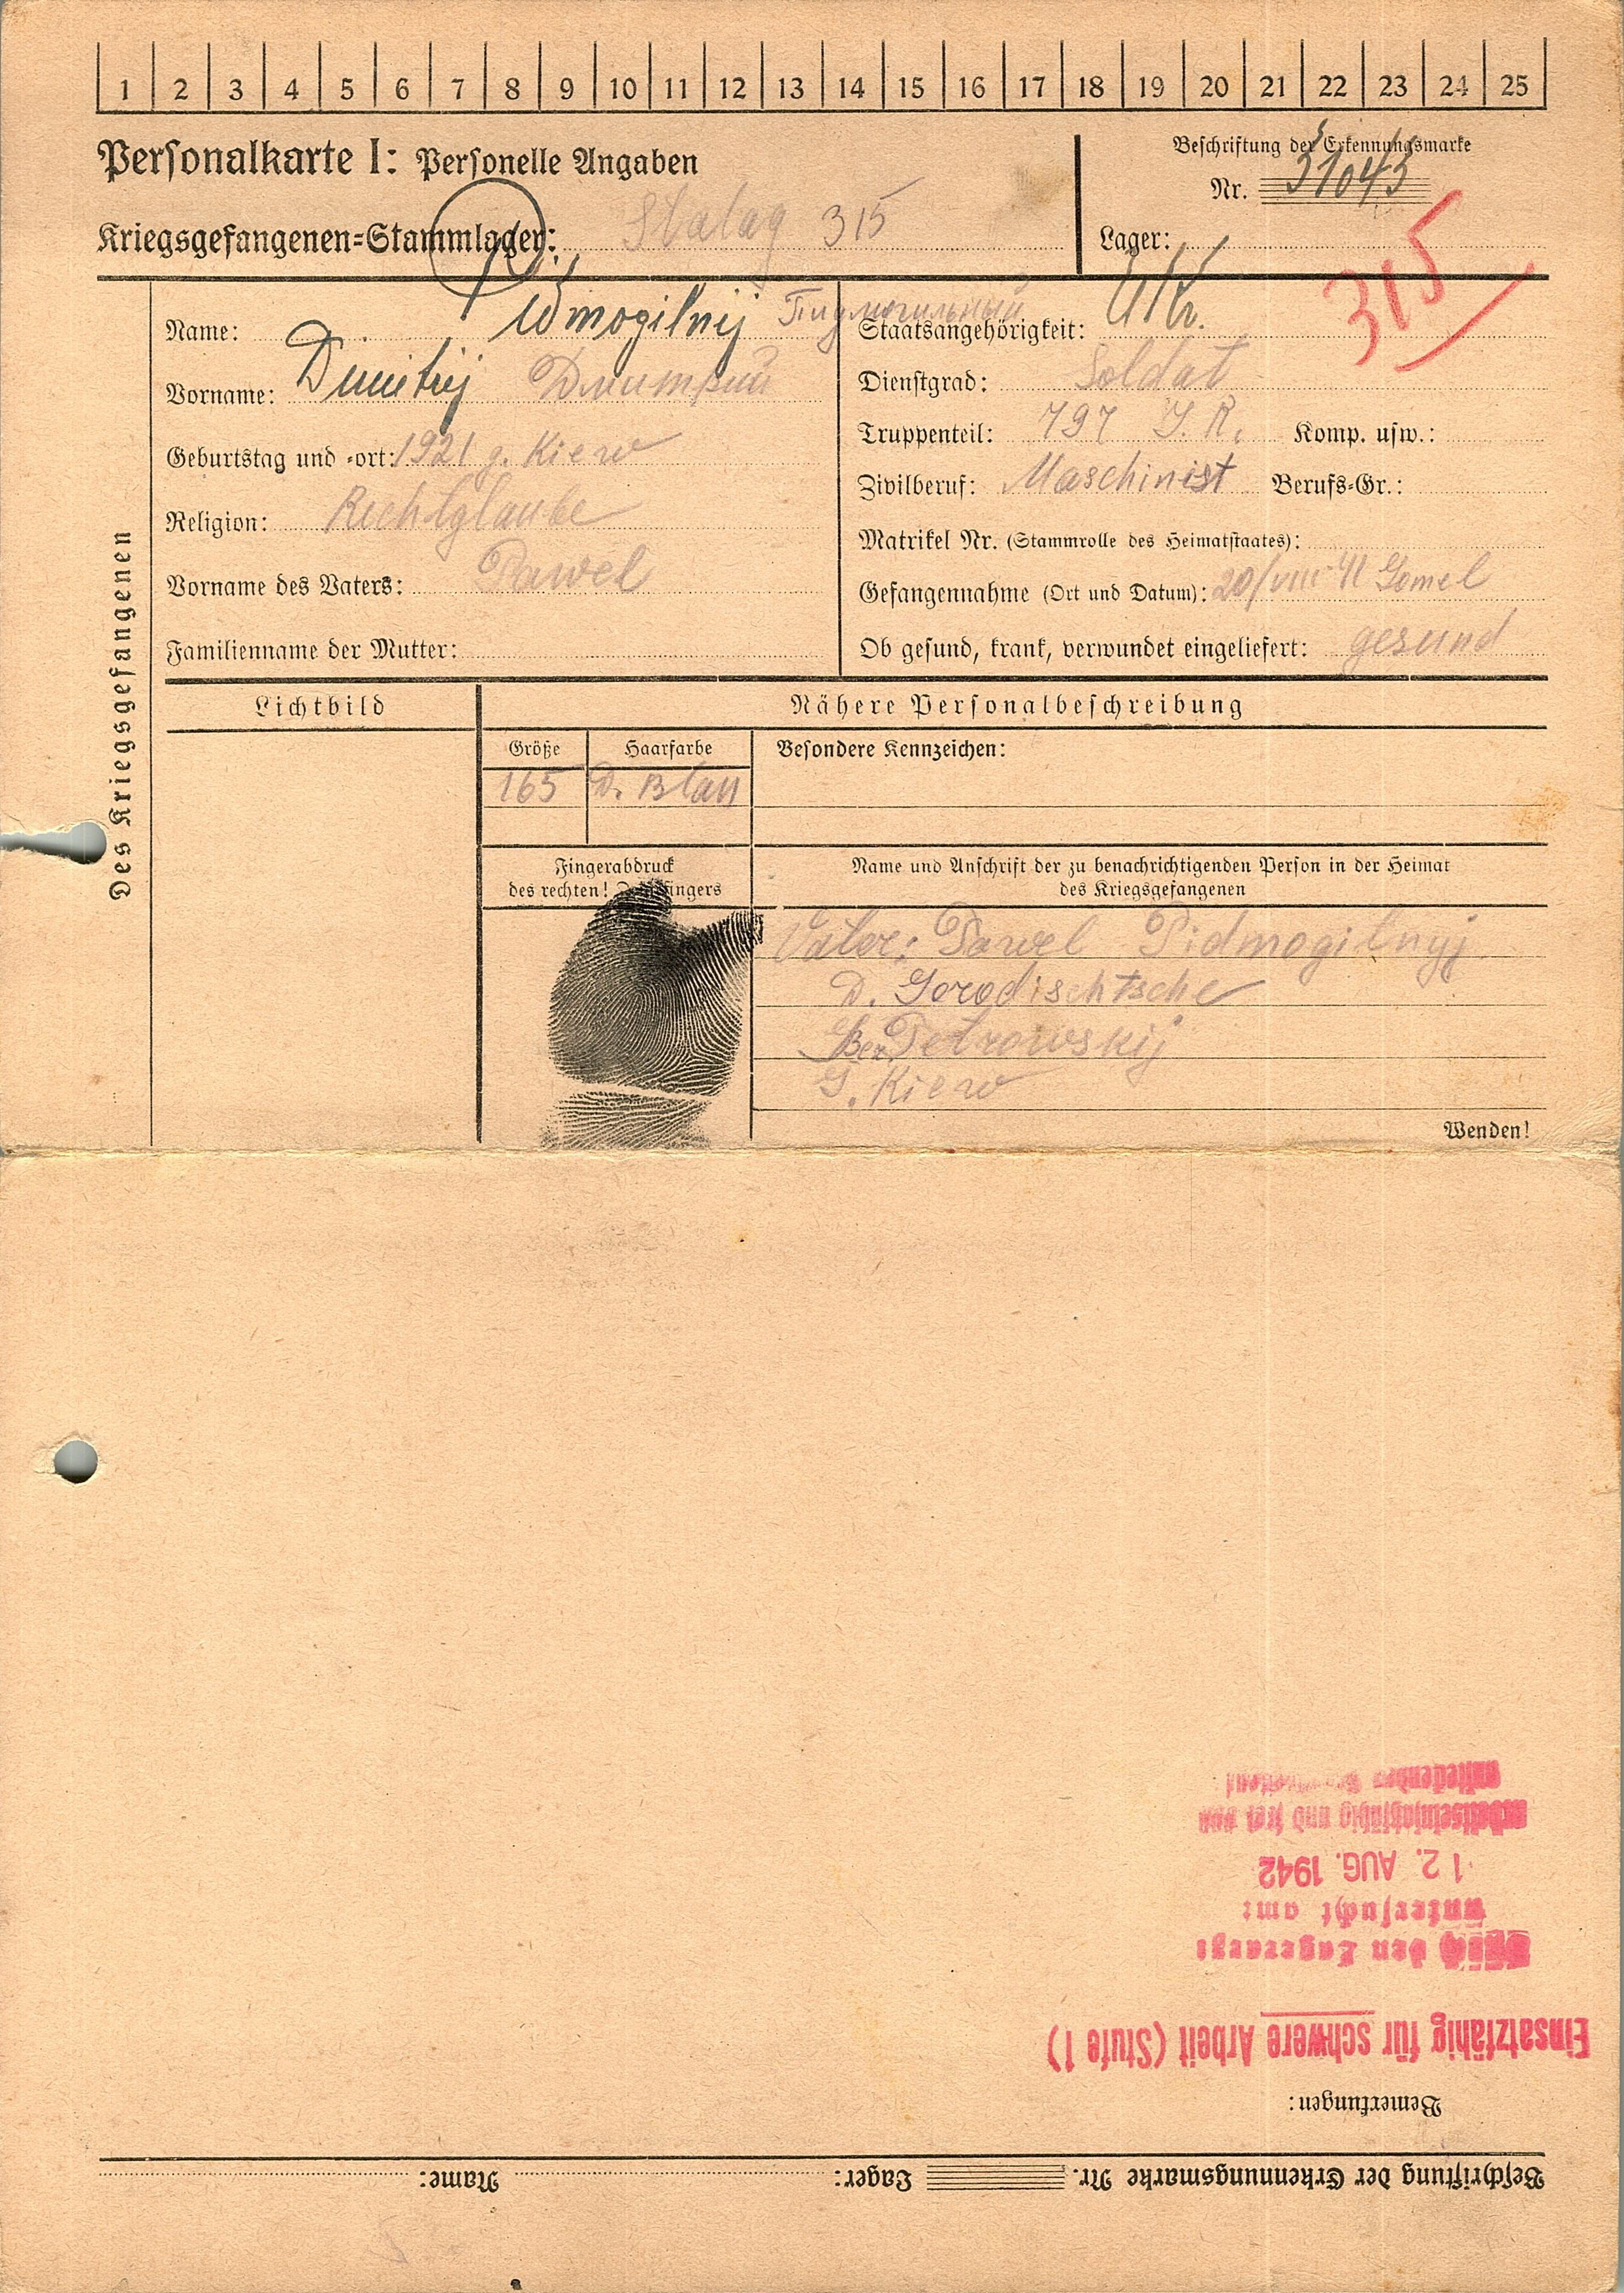 1 2 3 4 5 6 7 8 9 10 11 12 13 14 15 16 17 18 19 20 21 22 23 24 25
Personalkarte I: Personelle Angaben
Beschriftung der Erkennungsmarke
Nr. 51043
Kriegsgefangenen-Stammlager: Stalag 315
Lager:
315
Des Kriegsgefangenen
Name: Пидмогильный
Vorname: Dmitrij Дмитрий
Geburtstag und -ort: 1921 g. Kiew
Religion: Rechtglaube
Vorname des Vaters: Pawel
Familienname der Mutter:
Staatsangehörigkeit: Ukr.
Dienstgrad: Soldat
Truppenteil: 797 J.R. Komp. usw.:
Zivilberuf: Maschinist Berufs-Gr.:
Matrikel Nr. (Stammrolle des Heimatstaates):
Gefangennahme (Ort und Datum): 20/VIII-41 Gomel
Ob gesund, krank, verwundet eingeliefert: gesund
Lichtbild
Nähere Personalbeschreibung
Größe Haarfarbe Besondere Kennzeichen:
165 D. Blau
Fingerabdruck
des rechten!
Name und Anschrift der zu benachrichtigenden Person in der Heimat
des Kriegsgefangenen
Vater: Pawel Pidmogilnyj
D. Gorodischtsche
Petrowskij
G. Kiew
Wenden!
Beschriftung der Erkennungsmarke Nr. Lager: Name:
Bemerkungen:
Einsatzfähig für schwere Arbeit (Stufe 1)
den Lagerarzt
untersucht am:
12. AUG. 1942
arbeitseinsatzfähig und frei von